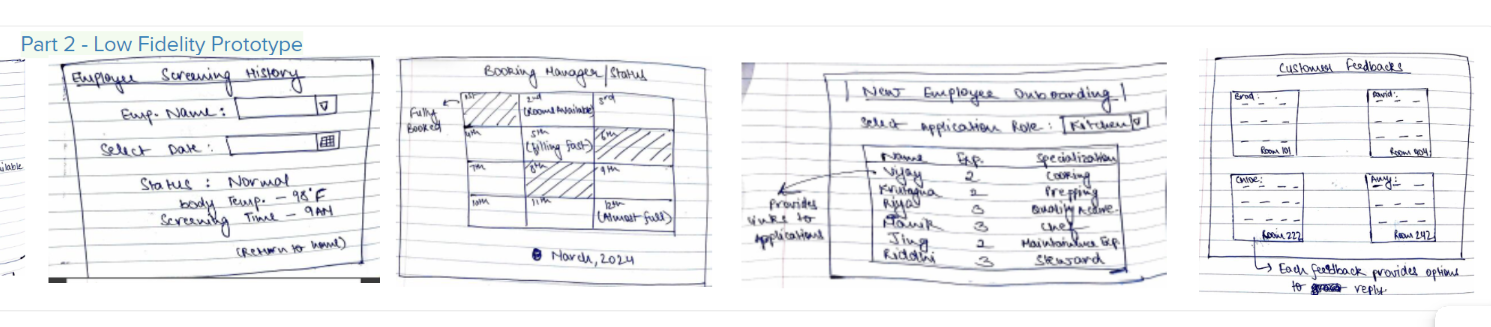 Part 2 - Low Fidelity Prototype
ilable
Employee Screening History
Emp. Name :
Select Date :
Status : Normal
body Temp. - 98°F
Screening Time - 9AM
(Return to home)
Booking Manager / Status
Fully
Booked
1st
2nd
(Rooms Available)
3rd
4th
5th
(filling fast)
6th
7th
8th
9th
10th
11th
12th
(Almost full)
March, 2024
New Employee Onboarding
Select Application Role : Kitchen
Name Exp. Specialization
Vijay 2 Cooking
Krutagna 2 Prepping
Riya 3 Quality
Manik 3 Chef
Jing 2 Maintainance Exp.
Riddhi 3 Steward
Provides
links to
Applications
Customer Feedbacks
Brad :
Room 101
David :
Room 404
Chloe :
Room 222
Amy :
Room 242
Each feedback provides options
to reply.